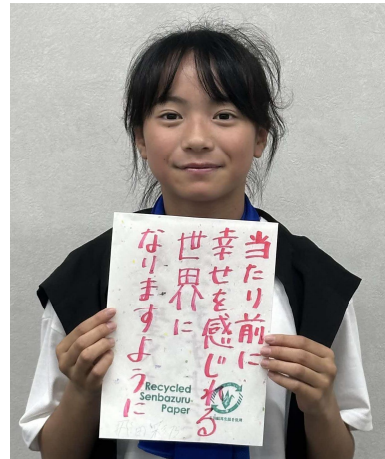 当たり前に
幸せを感じれる
世界に
なりますように
Recycled
Senbazuru
Paper